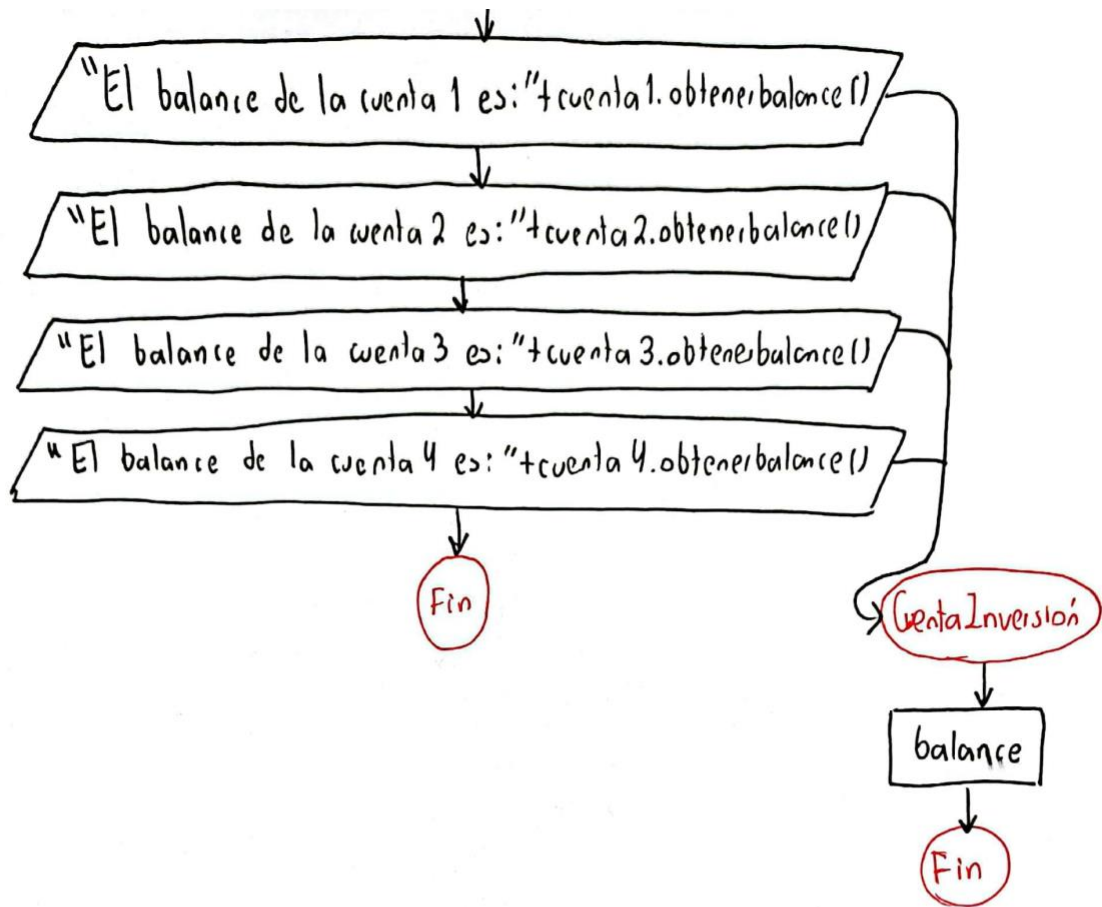 "El balance de la cuenta 1 es:"+cuenta1.obtenerbalance()
"El balance de la cuenta 2 es:"+cuenta2.obtenerbalance()
"El balance de la cuenta 3 es:"+cuenta3.obtenerbalance()
"El balance de la cuenta 4 es:"+cuenta4.obtenerbalance()
Fin
CuentaInversión
balance
Fin